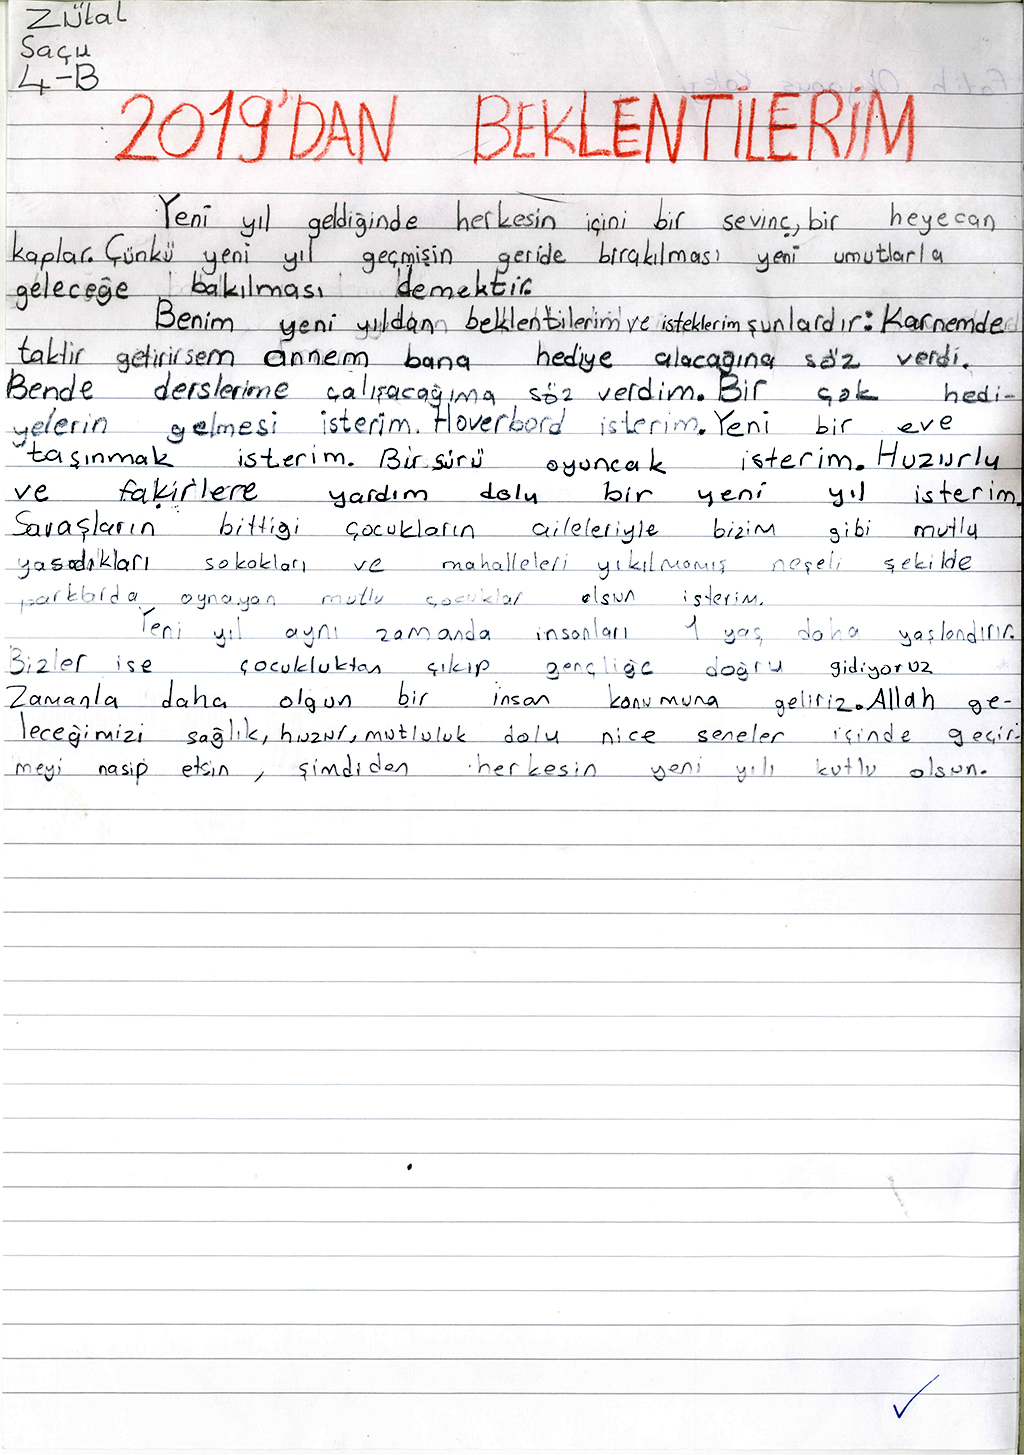 Zülal
Saçu
4-B
2019'DAN BEKLENTİLERİM
Yeni yıl geldiğinde herkesin içini bir sevinç, bir heyecan
kaplar. Çünkü yeni yıl geçmişin geride bırakılması yeni umutlarla
geleceğe bakılması demektir.
Benim yeni yıldan beklentilerim ve isteklerim şunlardır: Karnemde
taktir getirirsem annem bana hediye alacağına söz verdi.
Bende derslerime çalışacağıma söz verdim. Bir çok hedi-
yelerin gelmesi isterim. Hoverbord isterim. Yeni bir eve
taşınmak isterim. Bir sürü oyuncak isterim. Huzurlu
ve fakirlere yardım dolu bir yeni yıl isterim.
Savaşların bittigi çocukların aileleriyle bizim gibi mutlu
yaşadıkları sokakları ve mahalleleri yıkılmamış neşeli şekilde
parklarda oynayan mutlu çocuklar olsun isterim.
Yeni yıl aynı zamanda insanları 1 yaş daha yaşlandırır.
Bizler ise çocukluktan çıkıp gençliğe doğru gidiyoruz
Zamanla daha olgun bir insan konumuna geliriz. Allah ge-
leceğimizi sağlık, huzur, mutluluk dolu nice seneler içinde geçir-
meyi nasip etsin, şimdiden herkesin yeni yılı kutlu olsun.